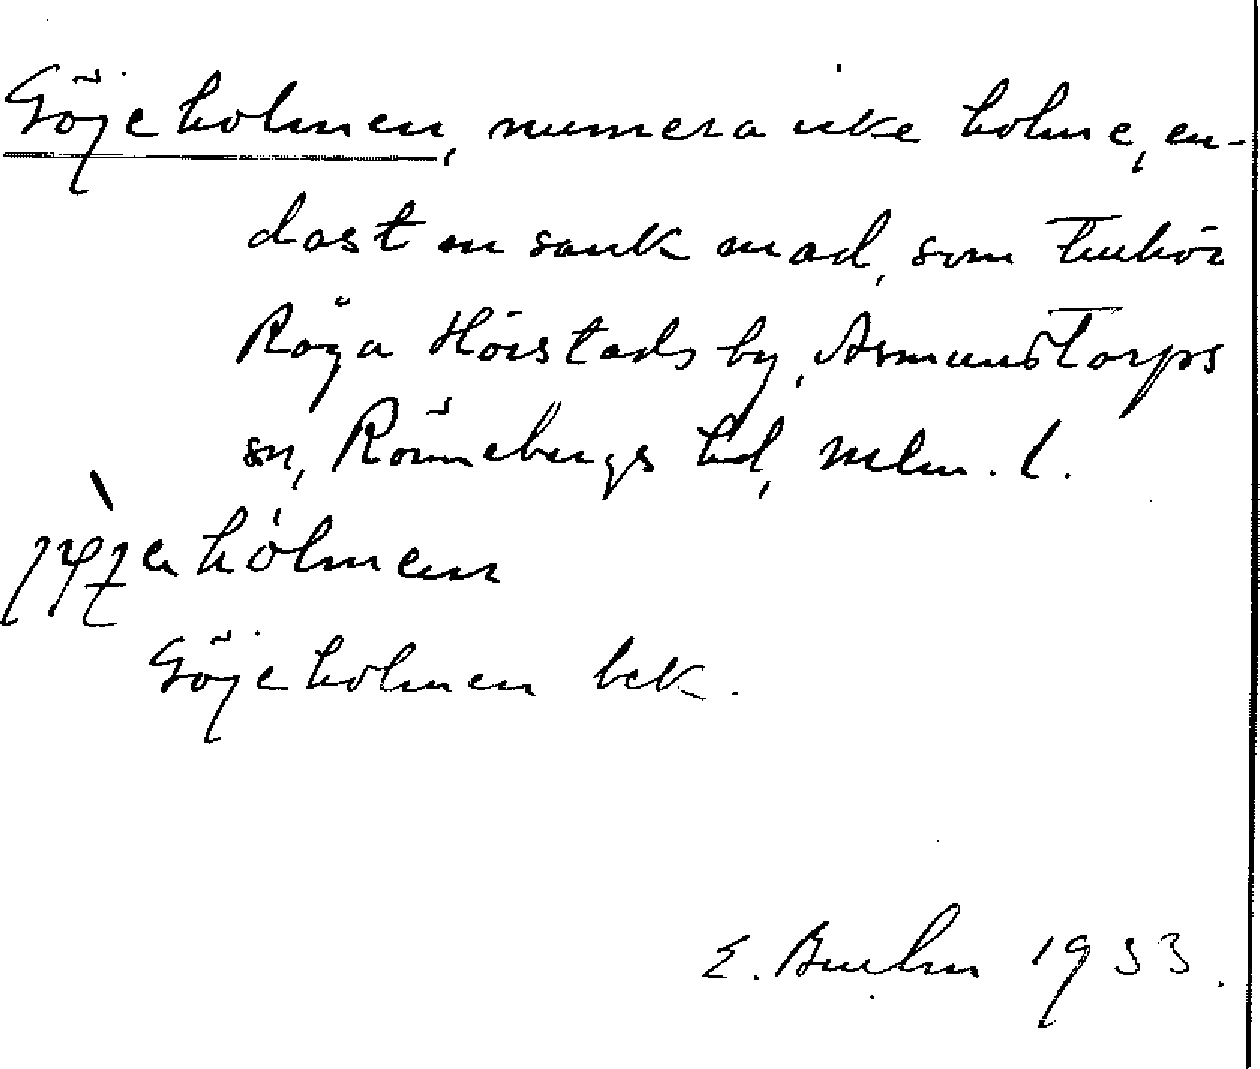 Göjeholmen, numera icke holme, en-
dast en sank mad, som tillhör
Röga Hörstads by, Asmundtorps
sn, Rönnebergs hd, Mlm. l.
hólmen
Göjeholmen bek.
E. 1933.